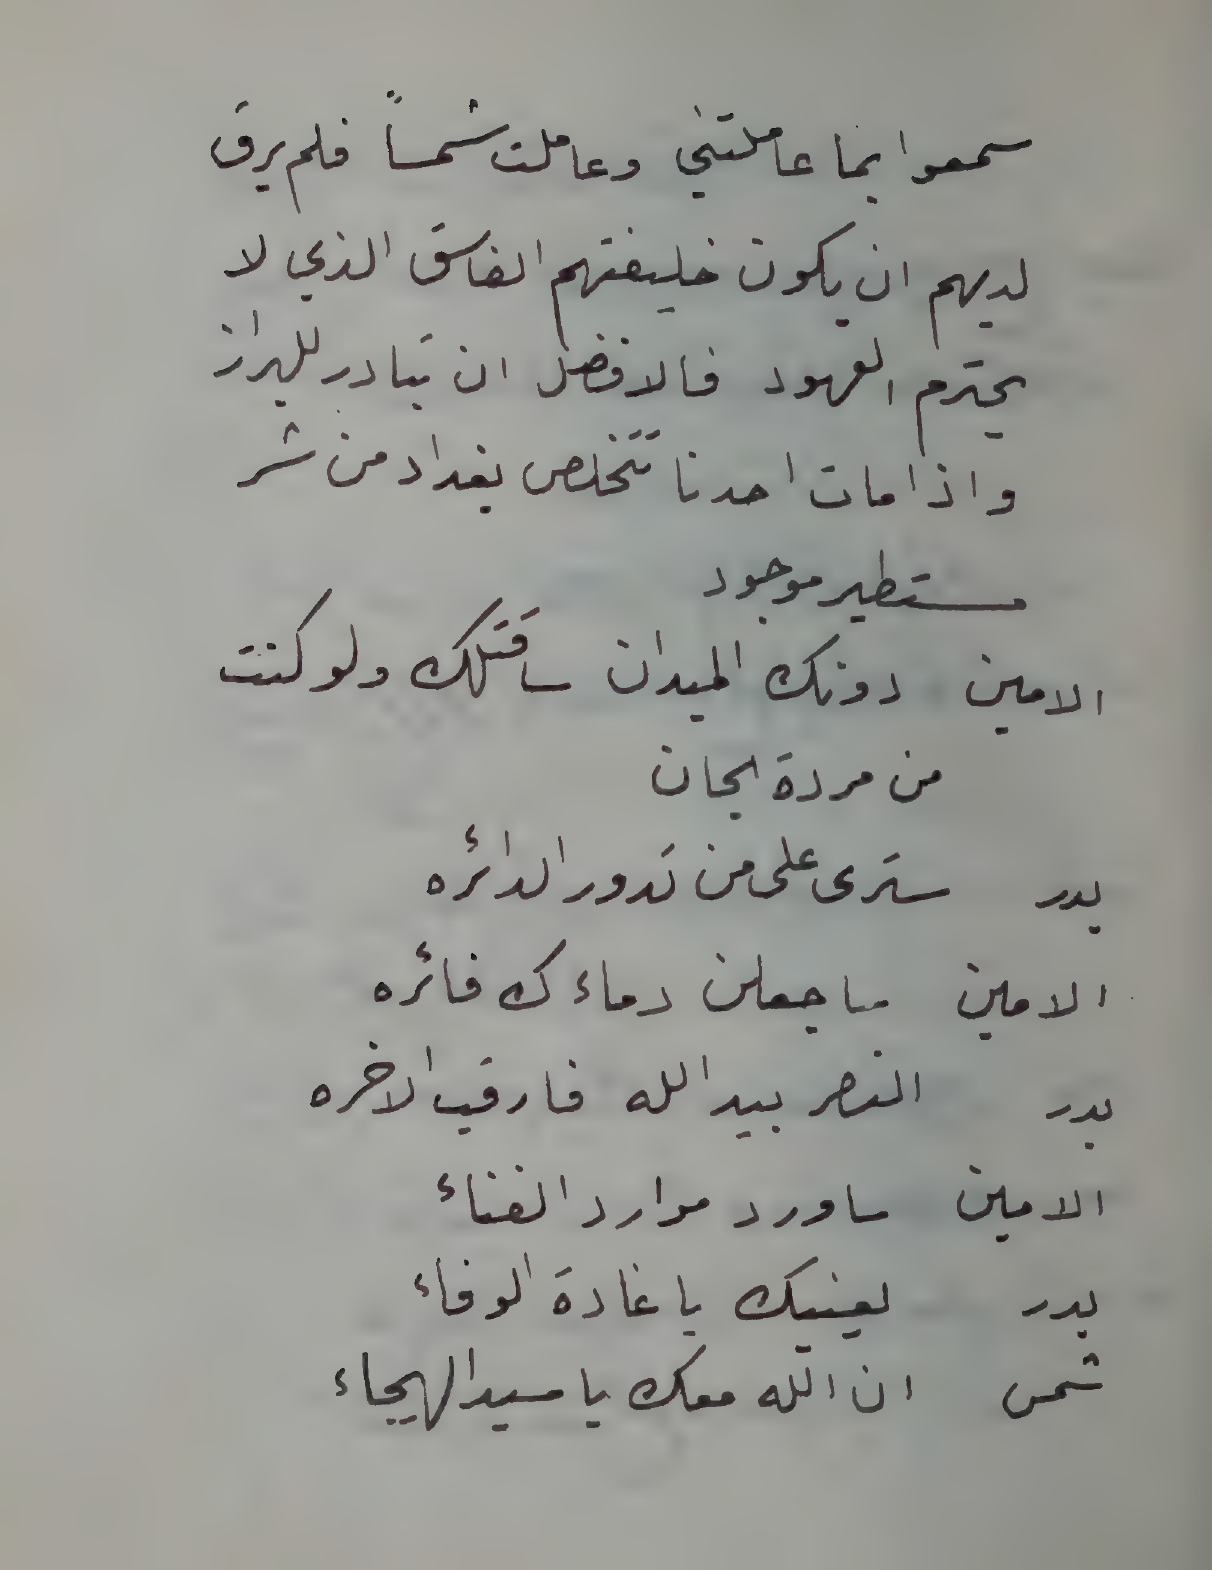 سمعوا بما عاملتني وعاملت شمساً فلم يرق
لديهم ان يكون خليفتهم الفاسق الذي لا
يحترم العهود فالافضل ان تبادر للبراز
واذا مات احدنا تتخلص بغداد من شر
مستطير موجود
الامين دونك الميدان ساقتلك ولو كنت
من مردة الجان
بدر سترى على من تدور الدائره
الامين ساجعلن دماءك فائره
بدر النصر بيد الله فارقب الاخره
الامين ساورد موارد الفناء
بدر لعينيك يا غادة الوفاء
شمس ان الله معك يا سيد الهيجاء